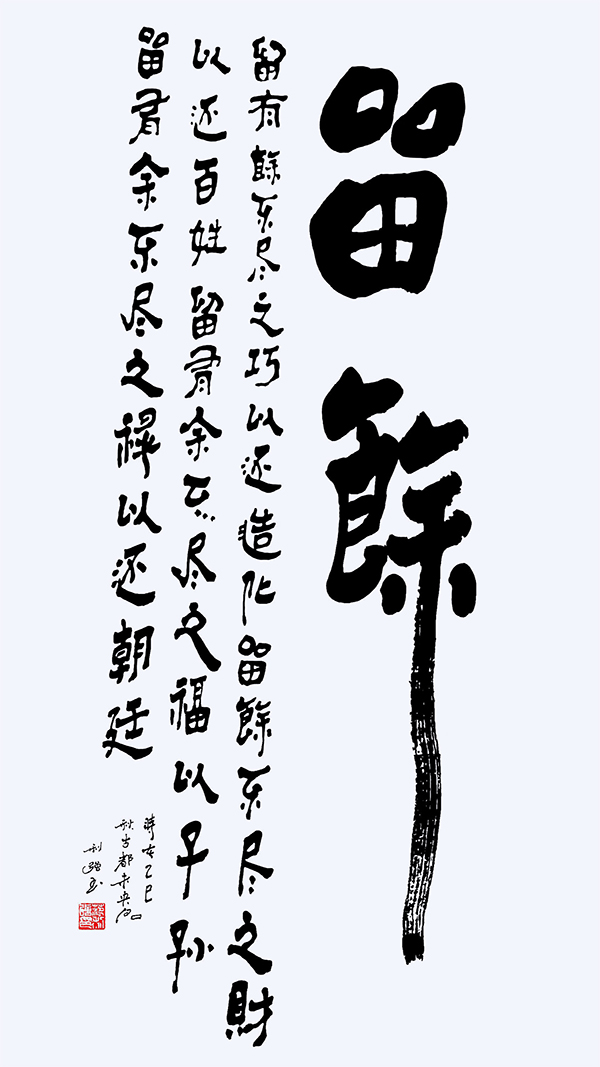 留餘
留有餘不尽之巧以还造化留餘不尽之財
以还百姓留有余不尽之福以子孙
留有余不尽之禄以还朝廷
时在乙巳
秋古都未央